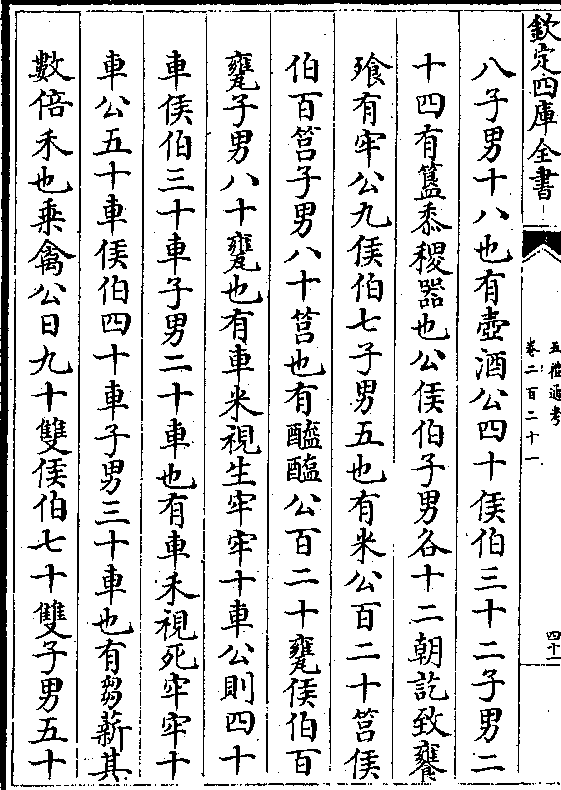 欽定四庫全書
五禮通考
卷二百二十一
四十一
八子男十八也有壺酒公四十侯伯三十二子男二
十四有簋黍稷器也公侯伯子男各十二朝訖致饔
飱有牢公九侯伯七子男五也有米公百二十筥侯
伯百筥子男八十筥也有醯醢公百二十甕侯伯百
甕子男八十甕也有車米視生牢牢十車公則四十
車侯伯三十車子男二十車也有車禾視死牢牢十
車公五十車侯伯四十車子男三十車也有芻薪其
數倍禾也乗禽公日九十雙侯伯七十雙子男五十